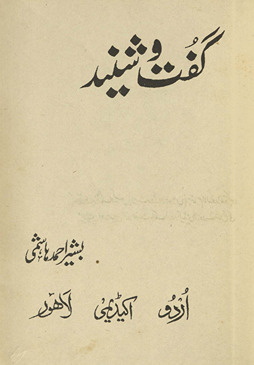 گفت و شنید
بشیر احمد ہاشمی
اردو اکیڈیمی لاہور